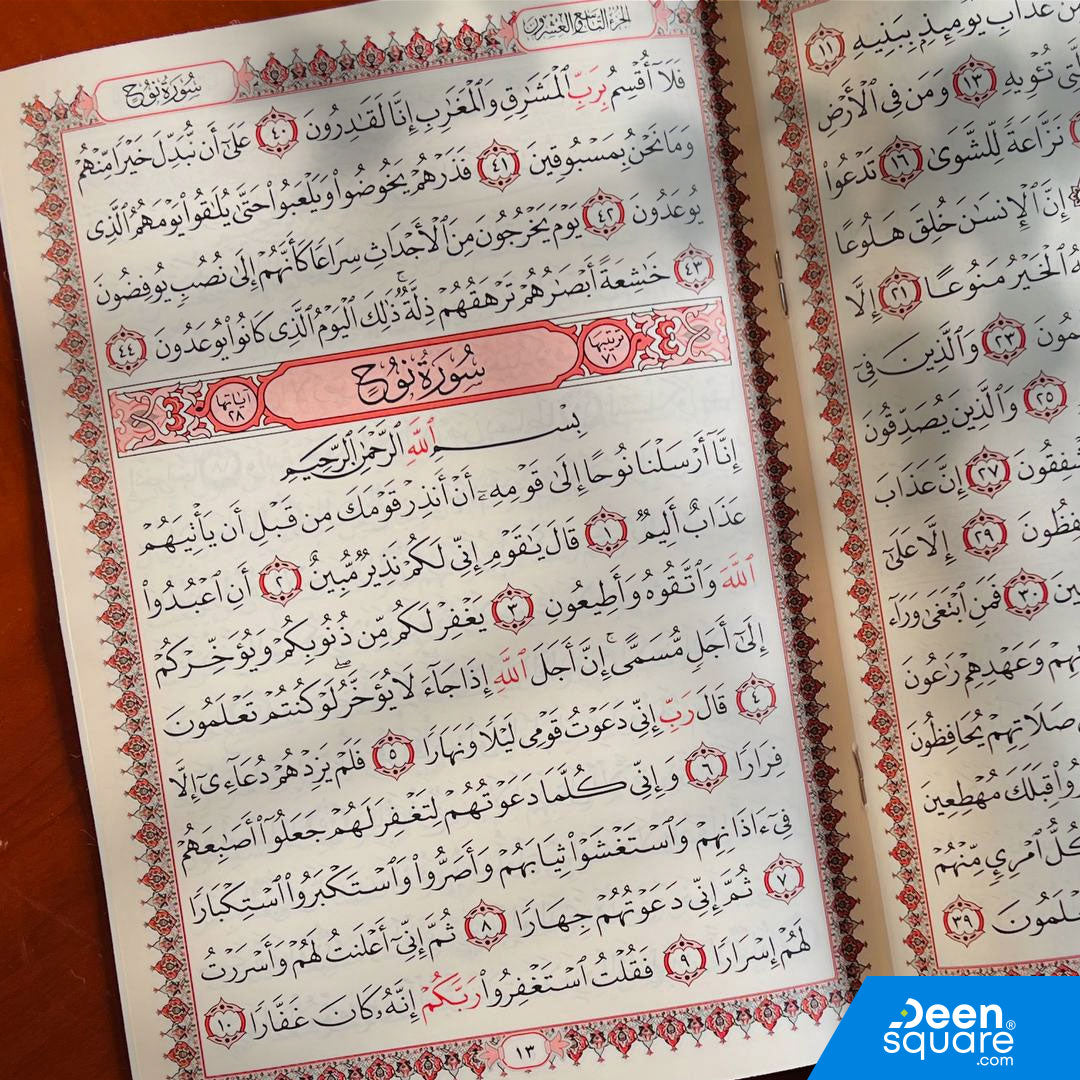 الجزء التاسع والعشرون
سُورَةُ نُوحٍ
فَلَآ أُقْسِمُ بِرَبِّ ٱلْمَشَٰرِقِ وَٱلْمَغَٰرِبِ إِنَّا لَقَٰدِرُونَ ٤٠ عَلَىٰٓ أَن نُّبَدِّلَ خَيْرًا مِّنْهُمْ
وَمَا نَحْنُ بِمَسْبُوقِينَ ٤١ فَذَرْهُمْ يَخُوضُوا۟ وَيَلْعَبُوا۟ حَتَّىٰ يُلَٰقُوا۟ يَوْمَهُمُ ٱلَّذِى
يُوعَدُونَ ٤٢ يَوْمَ يَخْرُجُونَ مِنَ ٱلْأَجْدَاثِ سِرَاعًا كَأَنَّهُمْ إِلَىٰ نُصُبٍ يُوفِضُونَ
٤٣ خَٰشِعَةً أَبْصَٰرُهُمْ تَرْهَقُهُمْ ذِلَّةٌ ۚ ذَٰلِكَ ٱلْيَوْمُ ٱلَّذِى كَانُوا۟ يُوعَدُونَ ٤٤
ترتيبها ٧١ سُورَةُ نُوحٍ آياتها ٢٨
بِسْمِ ٱللَّهِ ٱلرَّحْمَٰنِ ٱلرَّحِيمِ
إِنَّآ أَرْسَلْنَا نُوحًا إِلَىٰ قَوْمِهِۦٓ أَنْ أَنذِرْ قَوْمَكَ مِن قَبْلِ أَن يَأْتِيَهُمْ
عَذَابٌ أَلِيمٌ ١ قَالَ يَٰقَوْمِ إِنِّى لَكُمْ نَذِيرٌ مُّبِينٌ ٢ أَنِ ٱعْبُدُوا۟
ٱللَّهَ وَٱتَّقُوهُ وَأَطِيعُونِ ٣ يَغْفِرْ لَكُم مِّن ذُنُوبِكُمْ وَيُؤَخِّرْكُمْ
إِلَىٰٓ أَجَلٍ مُّسَمًّى ۚ إِنَّ أَجَلَ ٱللَّهِ إِذَا جَآءَ لَا يُؤَخَّرُ ۖ لَوْ كُنتُمْ تَعْلَمُونَ
٤ قَالَ رَبِّ إِنِّى دَعَوْتُ قَوْمِى لَيْلًا وَنَهَارًا ٥ فَلَمْ يَزِدْهُمْ دُعَآءِىٓ إِلَّا
فِرَارًا ٦ وَإِنِّى كُلَّمَا دَعَوْتُهُمْ لِتَغْفِرَ لَهُمْ جَعَلُوٓا۟ أَصَٰبِعَهُمْ
فِىٓ ءَاذَانِهِمْ وَٱسْتَغْشَوْا۟ ثِيَابَهُمْ وَأَصَرُّوا۟ وَٱسْتَكْبَرُوا۟ ٱسْتِكْبَارًا
٧ ثُمَّ إِنِّى دَعَوْتُهُمْ جِهَارًا ٨ ثُمَّ إِنِّىٓ أَعْلَنتُ لَهُمْ وَأَسْرَرْتُ
لَهُمْ إِسْرَارًا ٩ فَقُلْتُ ٱسْتَغْفِرُوا۟ رَبَّكُمْ إِنَّهُۥ كَانَ غَفَّارًا ١٠
١٣
عَذَابِ يَوْمِئِذٍۭ بِبَنِيهِ ١١
تُـْٔوِيهِ ١٣ وَمَن فِى ٱلْأَرْضِ
نَزَّاعَةً لِّلشَّوَىٰ ١٦ تَدْعُوا۟
إِنَّ ٱلْإِنسَٰنَ خُلِقَ هَلُوعًا
ٱلْخَيْرُ مَنُوعًا ٢١ إِلَّا
٢٣ وَٱلَّذِينَ فِىٓ
٢٥ وَٱلَّذِينَ يُصَدِّقُونَ
٢٧ إِنَّ عَذَابَ
٢٩ إِلَّا عَلَىٰٓ
٣٠ فَمَنِ ٱبْتَغَىٰ وَرَآءَ
وَعَهْدِهِمْ رَٰعُونَ
صَلَاتِهِمْ يُحَافِظُونَ
قِبَلَكَ مُهْطِعِينَ
ٱمْرِئٍ مِّنْهُمْ
٣٩
Deen
square®
.com